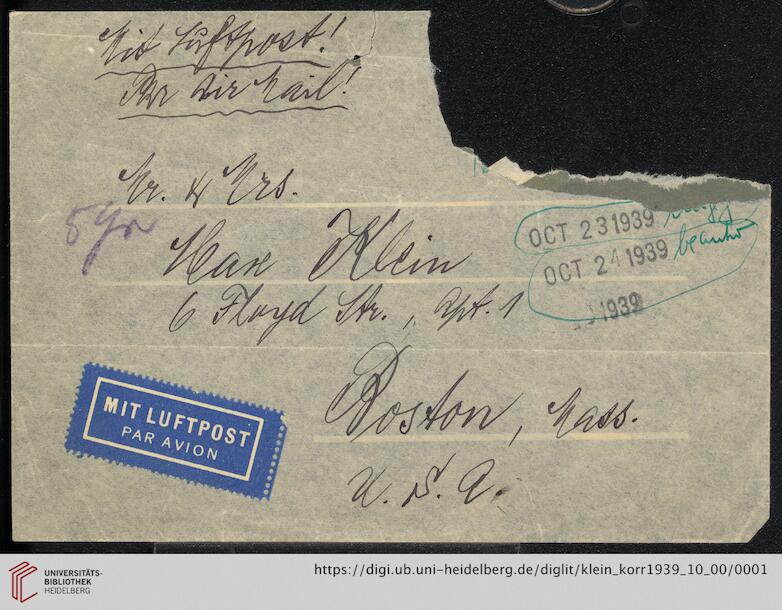 Mit Luftpost!
Per Air Mail!
Mr. & Mrs.
Max Klein
6 Floyd Str., Apt. 1
Boston, Mass.
U. S. A.
5 gr
OCT 23 1939
OCT 24 1939 beantw
1939
MIT LUFTPOST
PAR AVION
UNIVERSITÄTS-
BIBLIOTHEK
HEIDELBERG
https://digi.ub.uni-heidelberg.de/diglit/klein_korr1939_10_00/0001